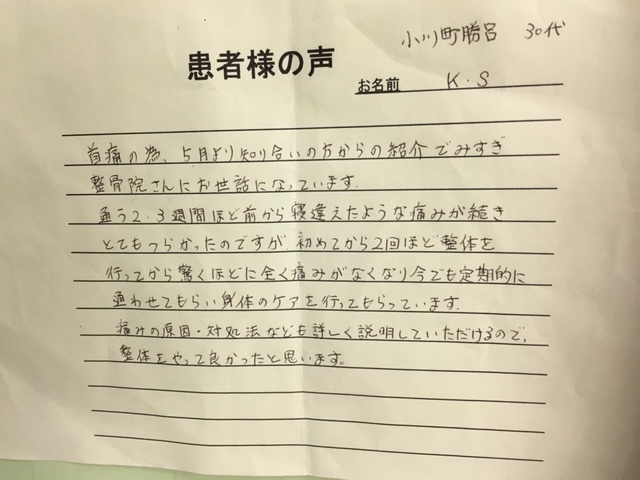 小川町勝呂 30代
患者様の声
お名前 K.S
首痛の為、5月より知り合いの方からの紹介でみすぎ
整骨院さんにお世話になっています。
通う2・3週間ほど前から寝違えたような痛みが続き
とてもつらかったのですが、初めてから2回ほど整体を
行ってから驚くほどに全く痛みがなくなり今でも定期的に
通わせてもらい身体のケアを行ってもらっています。
痛みの原因・対処法なども詳しく説明していただけるので、
整体をやって良かったと思います。